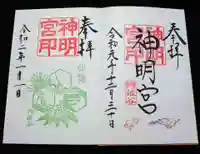 奉拝
神明宮
令和元年十二月三十日
奉拝
神明
宮印
令和二年一月一日